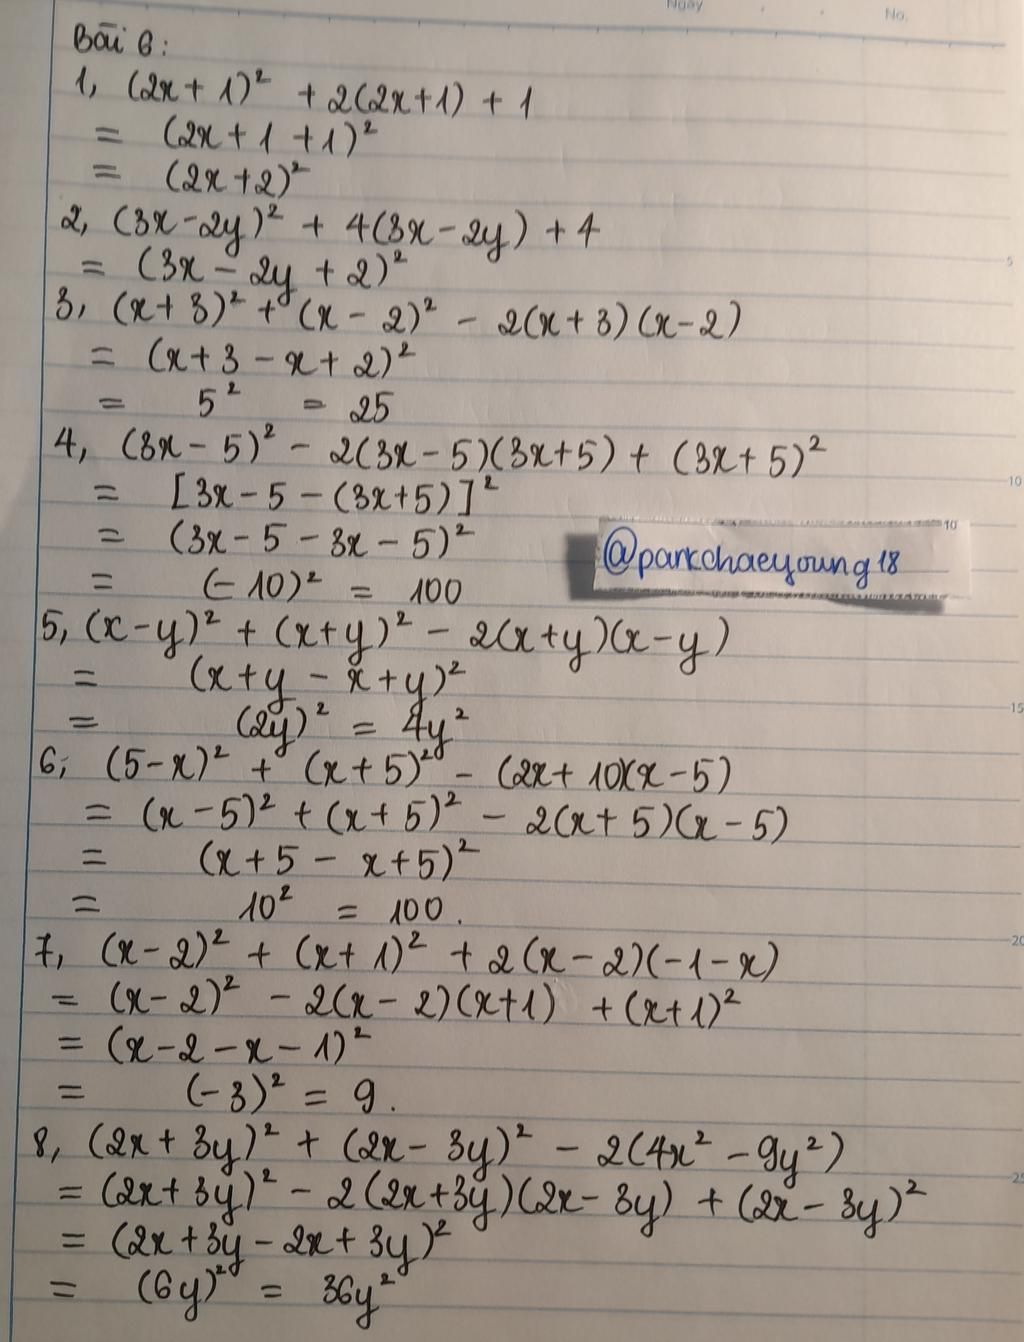 Ngày No.
Bài 6:
1, (2x+1)² + 2(2x+1) + 1
= (2x+1+1)²
= (2x+2)²
2, (3x-2y)² + 4(3x-2y) + 4
= (3x-2y+2)²
5
3, (x+3)² + (x-2)² - 2(x+3)(x-2)
= (x+3-x+2)²
= 5² = 25
4, (3x-5)² - 2(3x-5)(3x+5) + (3x+5)²
= [3x-5-(3x+5)]²
10
= (3x-5-3x-5)²
10
@parkchaeyoung18
= (-10)² = 100
5, (x-y)² + (x+y)² - 2(x+y)(x-y)
= (x+y-x+y)²
= (2y)² = 4y²
15
6, (5-x)² + (x+5)² - (2x+10)(x-5)
= (x-5)² + (x+5)² - 2(x+5)(x-5)
= (x+5-x+5)²
= 10² = 100.
20
7, (x-2)² + (x+1)² + 2(x-2)(-1-x)
= (x-2)² - 2(x-2)(x+1) + (x+1)²
= (x-2-x-1)²
= (-3)² = 9.
8, (2x+3y)² + (2x-3y)² - 2(4x²-9y²)
25
= (2x+3y)² - 2(2x+3y)(2x-3y) + (2x-3y)²
= (2x+3y-2x+3y)²
= (6y)² = 36y²